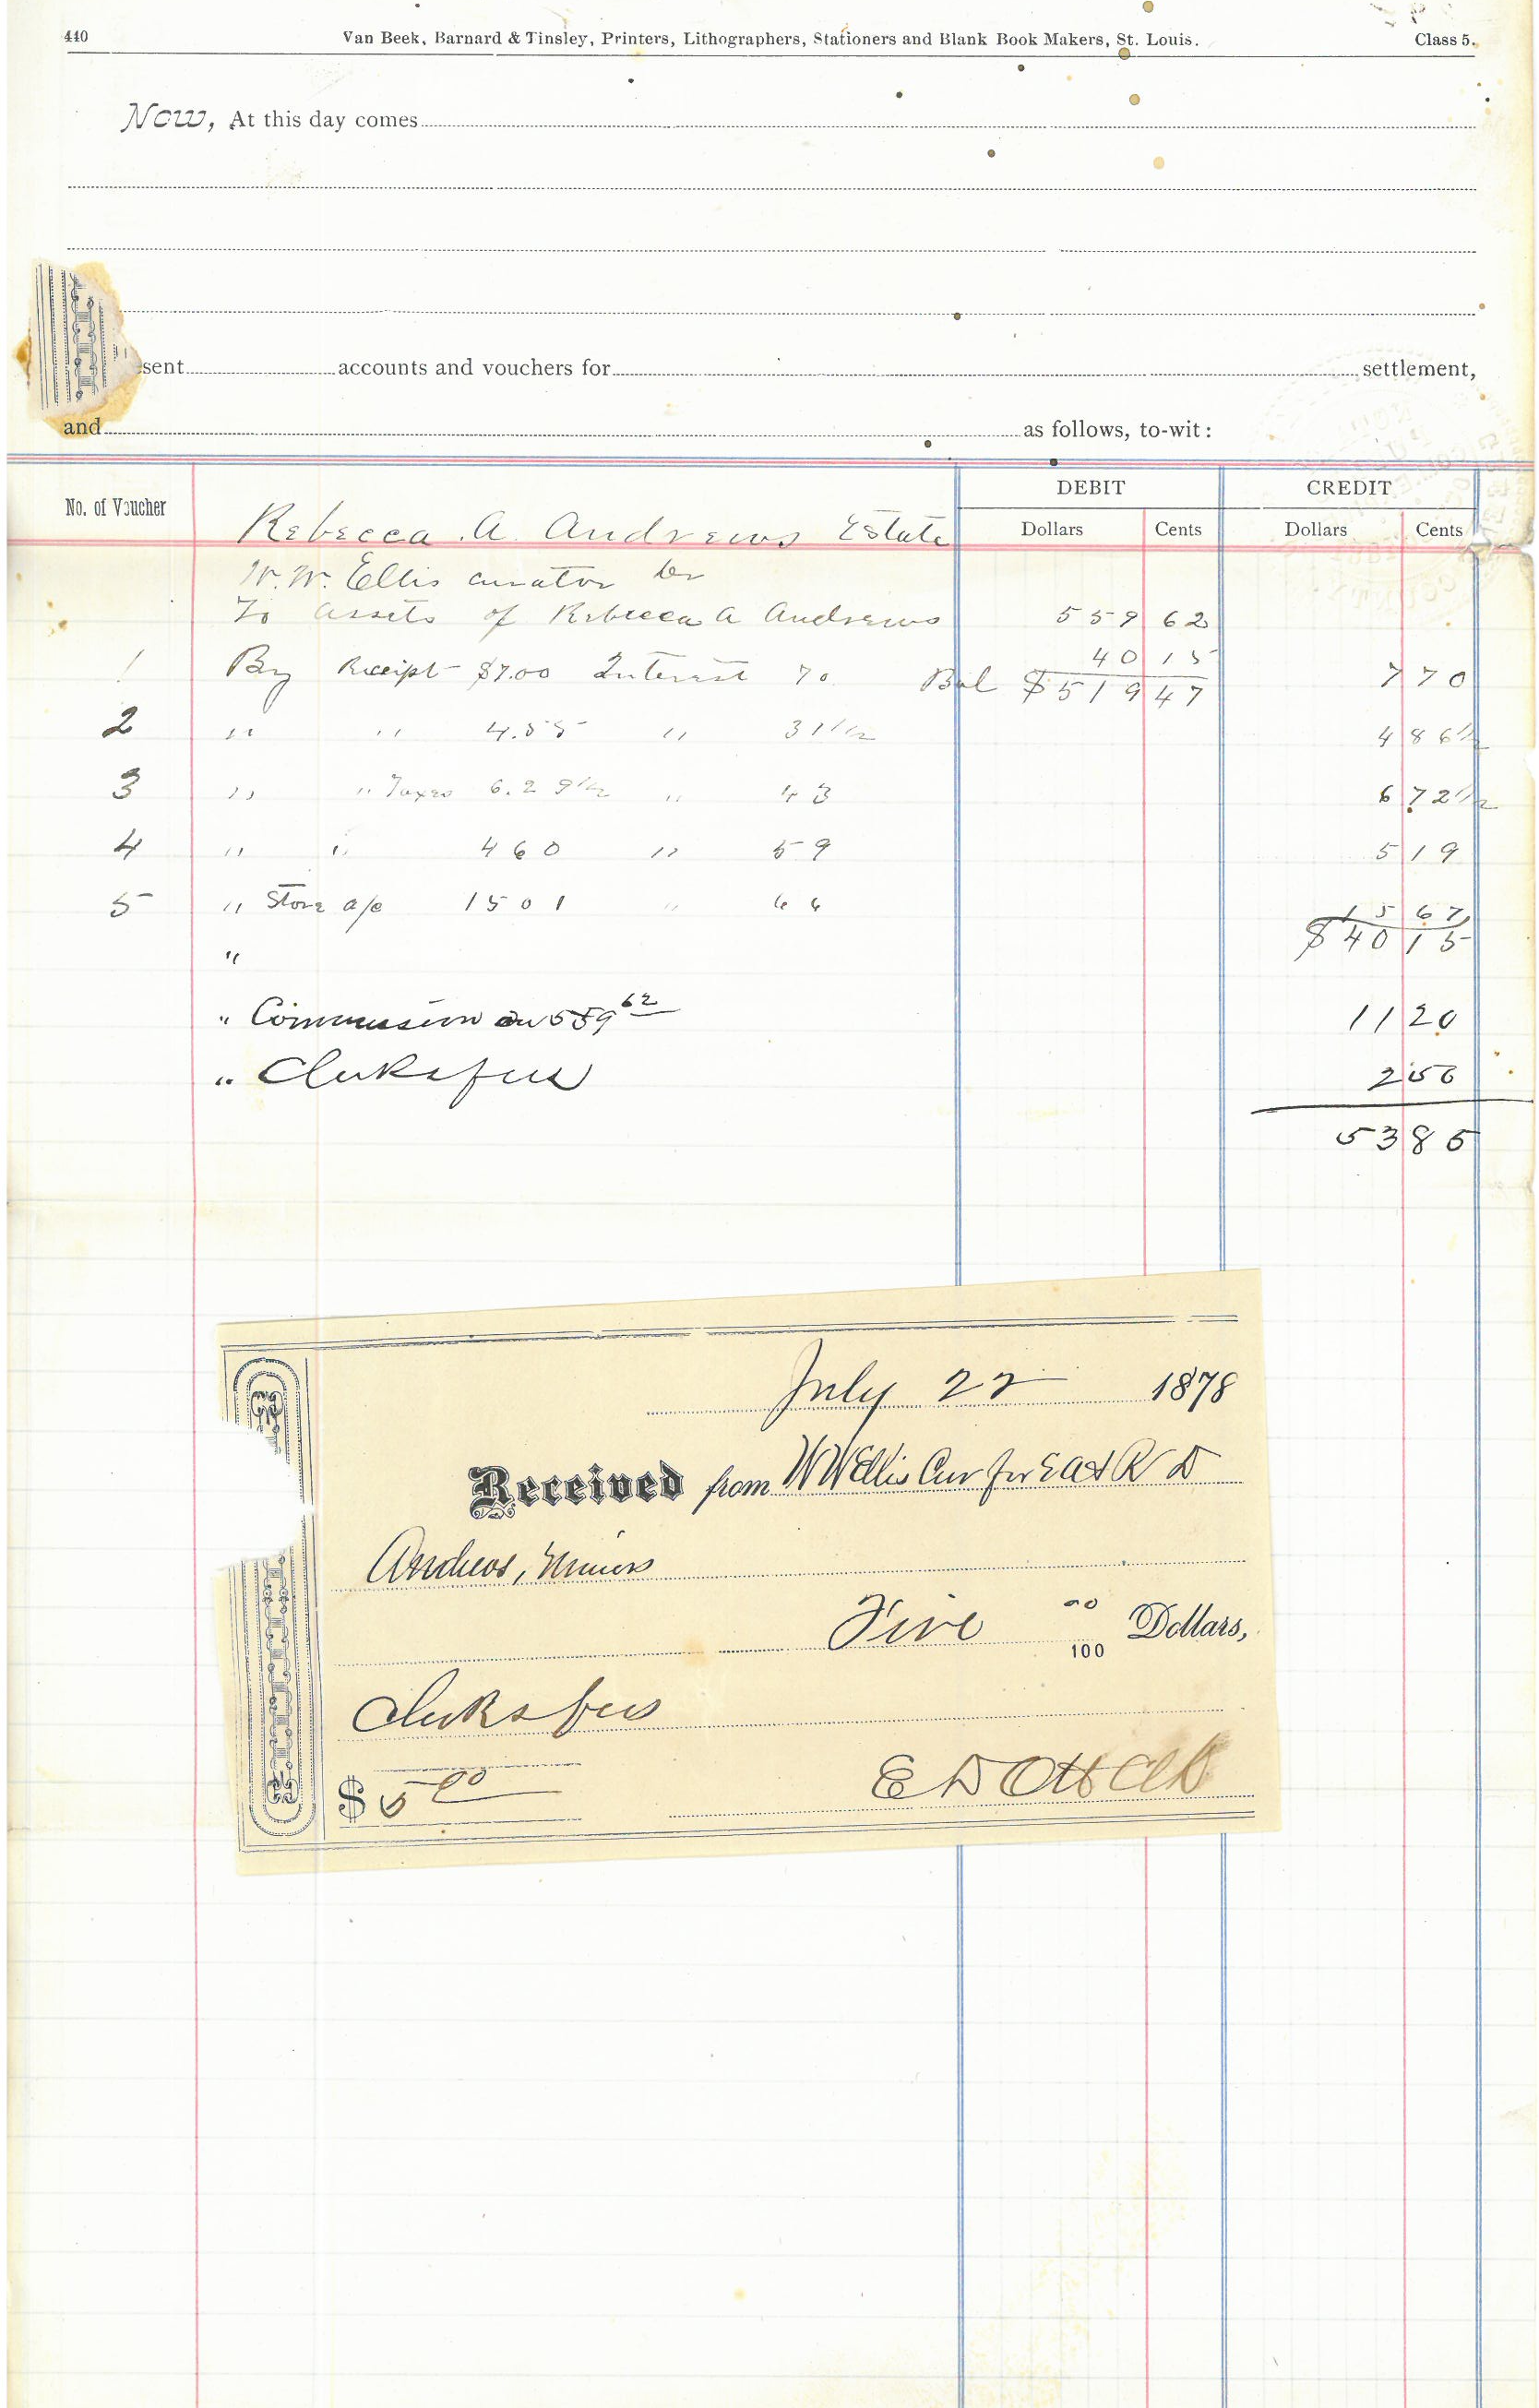 440 Van Beek, Barnard & Tinsley, Printers, Lithographers, Stationers and Blank Book Makers, St. Louis. Class 5.
Now, At this day comes
sent accounts and vouchers for settlement,
and as follows, to-wit:
No. of Voucher DEBIT CREDIT
Rebecca A Andrews Estate Dollars Cents Dollars Cents
W. W. Ellis curator Dr
To Assets of Rebecca A Andrews 559 62
40 15
1 By Receipt $7.00 Interest 70 Bal $519 47 7 70
2 " " 4.55 " 31 1/2 4 86 1/2
3 " " Taxes 6.29 1/2 " 43 6 72 1/2
4 " " 460 " 59 5 19
5 " Store a/c 1501 " 66 15 67
" $40 15
" Commission on 559 62 11 20
" Clerks fees 2 50
53 85
July 22 1878
Received from W W Ellis Cur for E A & R D
Andrews, Minors
Five 00/100 Dollars,
Clerks fees
$ 5 00 E D Ott Clk